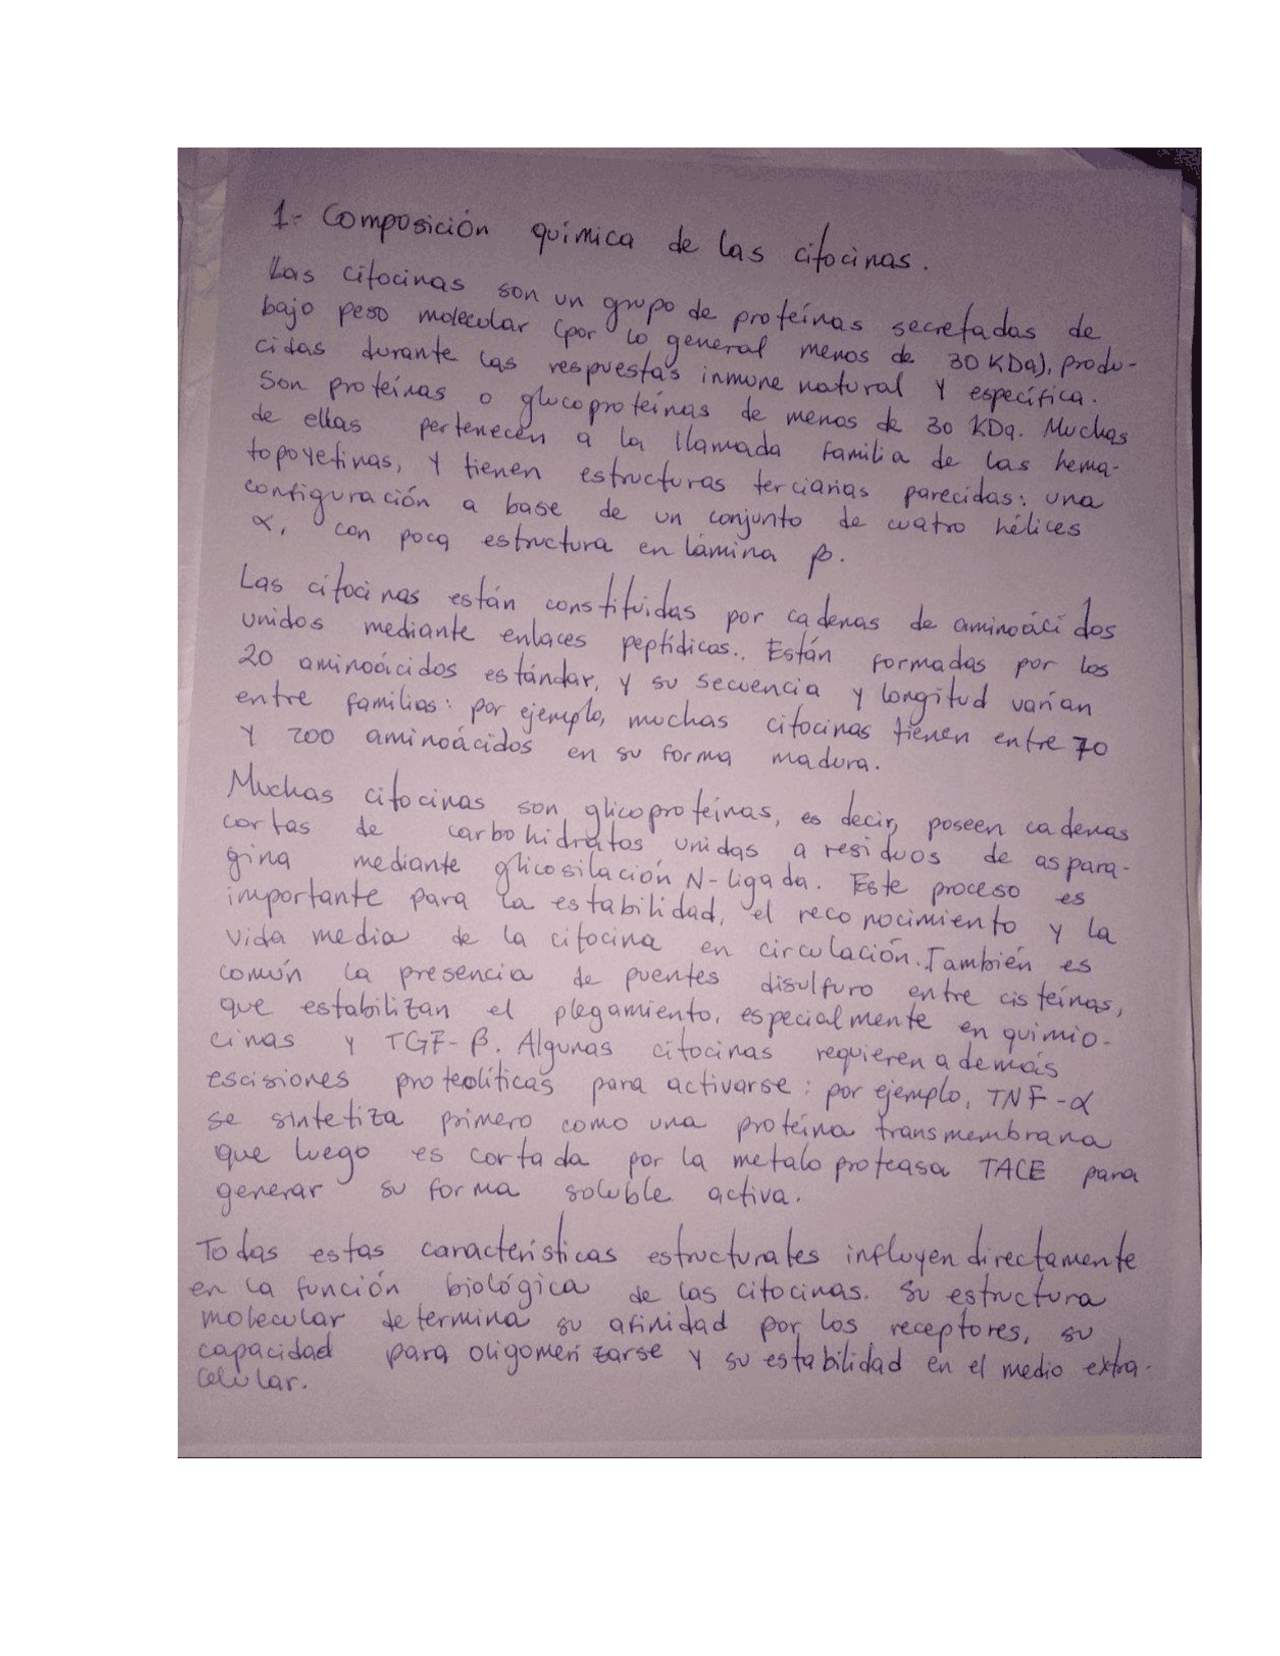 1.- Composición química de las citocinas.
Las citocinas son un grupo de proteínas secretadas de
bajo peso molecular (por lo general menos de 30 KDa), produ-
cidas durante las respuestas inmune natural y específica.
Son proteínas o glucoproteínas de menos de 30 KDa. Muchas
de ellas pertenecen a la llamada familia de las hema-
topoyetinas, y tienen estructuras terciarias parecidas: una
configuración a base de un conjunto de cuatro hélices
α, con poca estructura en lámina β.
Las citocinas están constituidas por cadenas de aminoácidos
unidos mediante enlaces peptídicos.. Están formadas por los
20 aminoácidos estándar, y su secuencia y longitud varían
entre familias: por ejemplo, muchas citocinas tienen entre 70
y 200 aminoácidos en su forma madura.
Muchas citocinas son glicoproteínas, es decir, poseen cadenas
cortas de carbohidratos unidas a residuos de aspara-
gina mediante glicosilación N-ligada. Este proceso es
importante para la estabilidad, el reconocimiento y la
vida media de la citocina en circulación. También es
común la presencia de puentes disulfuro entre cisteínas,
que estabilizan el plegamiento, especialmente en quimio-
cinas y TGF-β. Algunas citocinas requieren además
escisiones proteolíticas para activarse: por ejemplo, TNF-α
se sintetiza primero como una proteína transmembrana
que luego es cortada por la metaloproteasa TACE para
generar su forma soluble activa.
Todas estas características estructurales influyen directamente
en la función biológica de las citocinas. Su estructura
molecular determina su afinidad por los receptores, su
capacidad para oligomerizarse y su estabilidad en el medio extra-
celular.